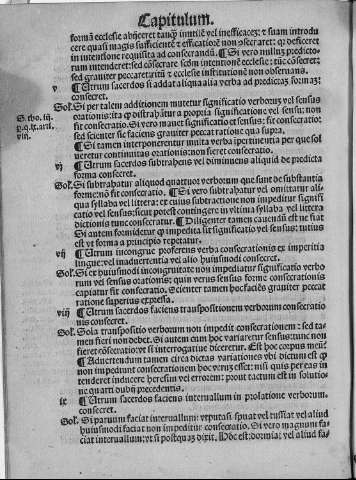 Capitulum.
formã ecclesie abijceret tanq̃ inutilẽ vel inefficacez: et suam introdu
cere quasi magis sufficientẽ et efficaciorẽ non ꝯsecraret: q̃ deficeret
in intentione requisita ad consecrandũ. ¶ Si vero nullũ predicto-
rum intenderet: sed cõsecrare scdm intentionẽ ecclesie: tũc cõsecret;
sed grauiter peccaret vitũ et ecclesie institutionẽ non obseruans.
v ¶ Utrum sacerdos si addat aliqua alia verba ad predictaz formaz:
consecret.
Sol. Si per talem additionem mutetur significatio verborum vel sensus
orationis: ita ꝙ distrahatur a propria significatione vel sensu: non
fit consecratio. Si vero maneat significatio et sensus: fit consecratio:
sed scienter sic faciens grauiter peccat ratione qua supra.
S. tho. iij.
p. q. lx. arti.
viij.
¶ Si tamen interponerentur multa verba impertinentia per que sol
ueretur continuitas orationis: non fieret consecratio.
vj ¶ Utrum sacerdos subtrahens vel diminuens aliquid de predicta
forma consecret.
Sol. Si subtrahatur aliquod quattuor verborum que sunt de substantia
forme: nõ fit consecratio. ¶ Si vero subtrahatur vel omittatur ali-
qua syllaba vel littera: ex cuius subtractione non impeditur signifi
catio vel sensus: sicut potest contingere in vltima syllaba vel littera
dictionis: tunc consecratur. ¶ Diligenter tamen cauendũ est ne fiat
Si autem formidetur ꝙ impedita sit significatio vel sensus: tutius
est vt forma a principio repetatur.
vij ¶ Utrum incongrue proferens verba consecrationis ex imperitia
lingue: vel inaduertentia vel alio huiusmodi consecret.
Sol. Si ex huiusmodi incongruitate non impediatur significatio verbo
rum vel sensus orationis: quin verus sensus forme consecrationis
capiatur fit consecratio. Scienter tamen hoc faciẽs grauiter peccat
ratione superius expressa.
viij ¶ Utrum sacerdos faciens transpositionem verborum consecratio
nis consecret.
Sol. Sola transpositio verborum non impedit consecrationem: sed ta-
men fieri non debet. Si autem cum hoc variaretur sensus: tunc non
fieret cõsecratio: vt si interrogatiue diceretur. Est hoc corpus meuz
¶ Aduertendum tamen circa dictas variationes vbi dictum est ꝙ
non impediunt consecrationem hoc verũ esset: nisi quis per eas in
tenderet inducere heresim vel errorem: prout tactum est in solutio
ne quarti dubij precedentis.
ix ¶ Utrum sacerdos faciens interuallum in prolatione verborum.
consecret.
Sol. Si paruum faciat interuallum: vtputa si spuat vel tussiat vel aliud
huiusmodi faciat non impeditur consecratio. Si vero magnum fa-
ciat interuallum: vt si postq̃ã dixit. Hoc est: dormiat: vel aliud fa-